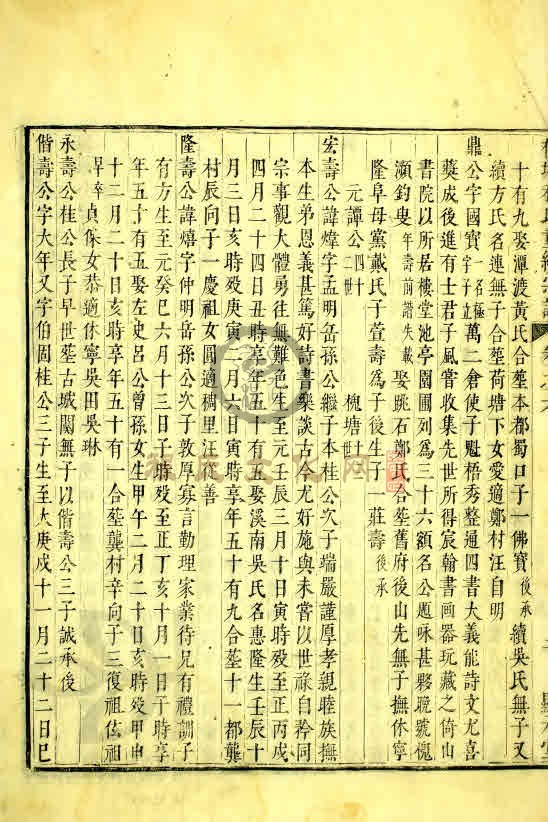 十有九娶潭渡黃氏合葬本都蜀口子一佛寳後承 續吳氏無子又
續方氏名連無子合葬荷塘下女愛適鄭村汪自明
鼎公字國寳一名極字子立萬二倉使子魁梧秀整通四書大義能詩文尤喜
奬成後進有士君子風嘗收集先世所得宸翰書画器玩藏之倚山
書院以所居樓堂池亭園圃列為三十六額名公題咏甚夥晚號槐
瀕釣叟年壽前譜失載娶眺石鄭氏合葬舊府後山先無子撫休寧
隆阜母黨戴氏子萱壽為子後生子一莊壽後承
元譚公四十二世 槐塘廿
宏壽公諱煒字孟明岳孫公繼子本桂公次子端嚴謹厚孝親睦族撫
本生弟恩義甚篤好詩書樂談古今尤好施與未嘗以世祿自矜同
宗事觀大體勇往無難色生至元壬辰三月十日寅時殁至正丙戌
四月二十四日丑時享年五十有五娶溪南吳氏名惠隆生壬辰十
月三日亥時殁庚寅二月六日寅時享年五十有九合葬十一都龔
村辰向子一慶祖女圓適稠里汪 善
隆壽公諱熺字仲明岳孫公次子敦厚寡言勤理家業待兄有禮訓子
有方生至元癸巳六月十三日子時殁至正丁亥十月一日子時享
年五十有五娶左史呂公曾孫女生甲午二月二十日亥時殁甲申
十二月二十日亥時享年五十有一合葬龔村辛向子三復祖佉祖
早卒 貞保女恭適休寧吳田吳琳
永壽公桂公長子早世葬古城關無子以偕壽公三子誠承後
偕壽公字大年又字伯固桂公三子生至大庚戌十一月二十二日巳